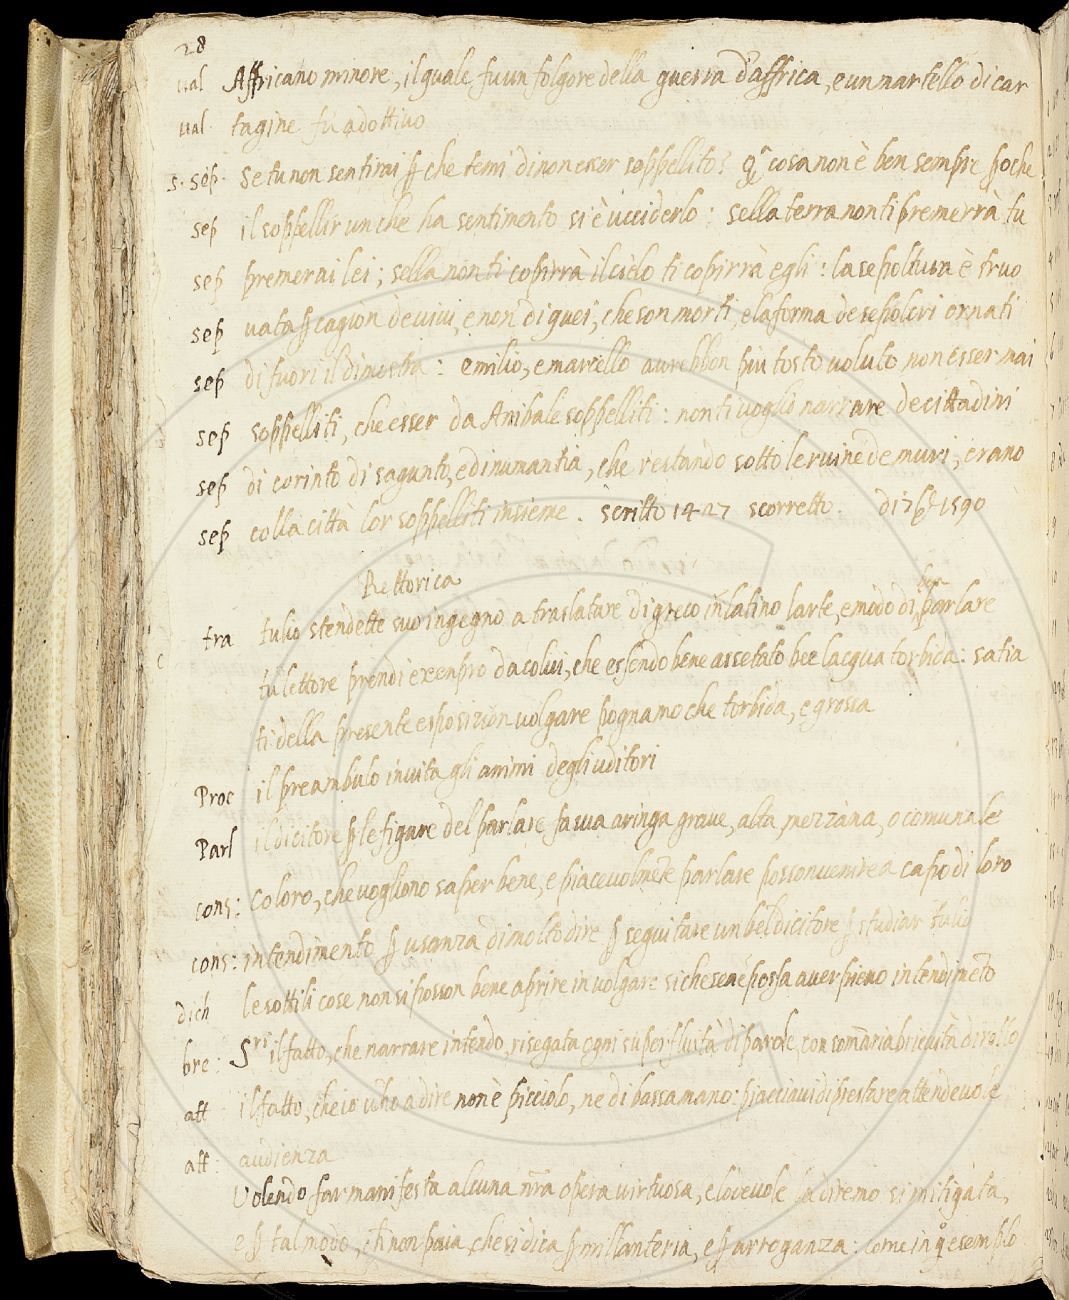 28
ual Affricano minore, il quale fu un folgore della guerra d'affrica, e un martello di car
ual tagine fu adottivo
s. sep. se tu non sentirai ꝑche temi di non esser soppellito? q̃ cosa non è ben sempre ꝑoche
sep il soppellir un che ha sentimento si è ucciderlo: sella terra non ti premerrà tu
sep premerai lei; sella non ti coprirrà il cielo ti coprirrà egli: la sepoltura è truo
sep uata ꝑ cagion de vivi, e non di quei, che son morti, e la forma de sepolcri ornati
sep di fuori il dimostra: emilio, e marcello aurebbon piu tosto voluto non esser mai
sep soppelliti, che esser da Anibale soppelliti: non ti voglio narrare de cittadini
sep di corinto di sagunto, e di numantia, che restando sotto le ruine de muri, erano
sep colla città lor soppelliti insieme. scritto 1427 scorretto. di 7bre 1590
Rettorica
tra tulio stendette suo ingegno a traslatare di greco in latino larte, e modo di ben parlare
tu lettore prendi exenpro da colui, che essendo bene assetato bee lacqua torbida: satia
ti della presente esposizion volgare pognamo che torbida, e grossa
Proe il preambulo invita gli animi degli uditori
Parl il dicitore ꝑ le figure del parlare fa sua aringa grave, alta, mezzana, o comunale
cons: Coloro, che vogliono saper bene, e piacevolmẽte parlare posson venire a capo di loro
cons: intendimento ꝑ usanza di molto dire ꝑ seguitare un bel dicitore ꝑ studiar tulio
dich le sottili cose non si posson bene aprire in volgare si che sene possa aver pieno intendimẽto
bre: Sri il fatto, che narrare intendo, risegata ogni superfluità di parole, con somaria brieuità dirollo
att il fatto, che io vi ho a dire non è picciolo, ne di bassa mano: piacciavi di prestare attendevole
att: audienza
Volendo far manifesta alcuna nr̃a opera virtuosa, e lodevole la diremo si mitigata,
e ꝑ tal modo, che non paia, che si dica ꝑ millanteria, e ꝑ arroganza: come in q̃ esemplo